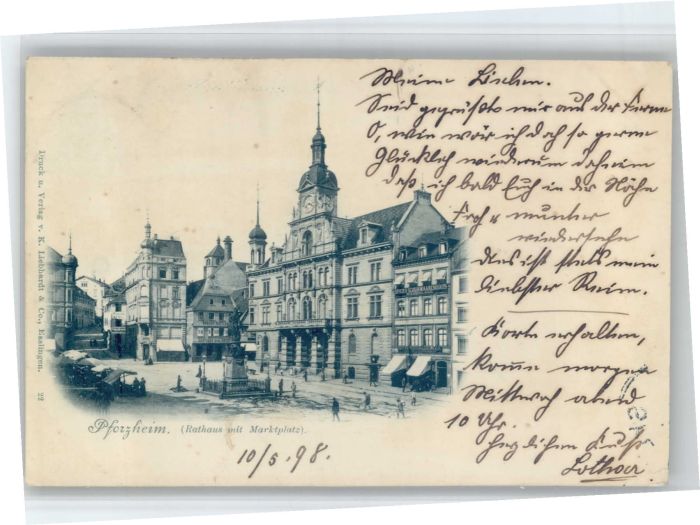 Meine Lieben.
Seid gegrüßt mir aus der Ferne
O, wie wär ich doch so gerne
Glücklich wiederum daheim
daß ich bald Euch in der Nähe
Froh u munter
wiedersehe
Dies ist stets mein
liebster Reim.
Karte erhalten,
komme morgen
Mittwoch abend
10 Uhr.
herzlichen Kuß
Lothar
Druck u. Verlag v. K. Liebhardt & Co., Esslingen. 22
Pforzheim. (Rathaus mit Marktplatz).
10/5.98.